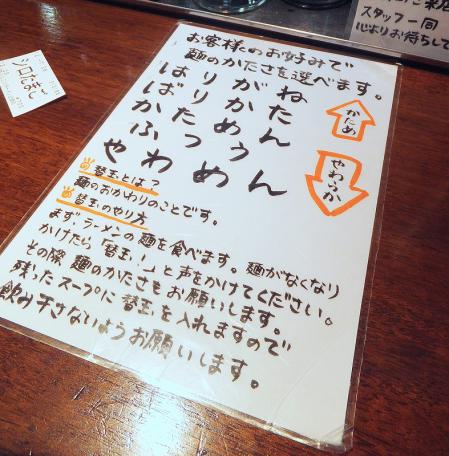 お客様のお好みで
麺のかたさを選べます。
はりがね
ばりかた
かためん
ふつう
やわめん
かため
やわらか
替玉とは?
麺のおかわりのことです。
替玉のやり方
まず、ラーメンの麺を食べます。麺がなくなり
かけたら「替玉!」と声をかけてください。
その際、麺のかたさもお願いします。
残ったスープに替玉を入れますので
飲み干さないようお願いします。
スタッフ一同
心よりお待ちして